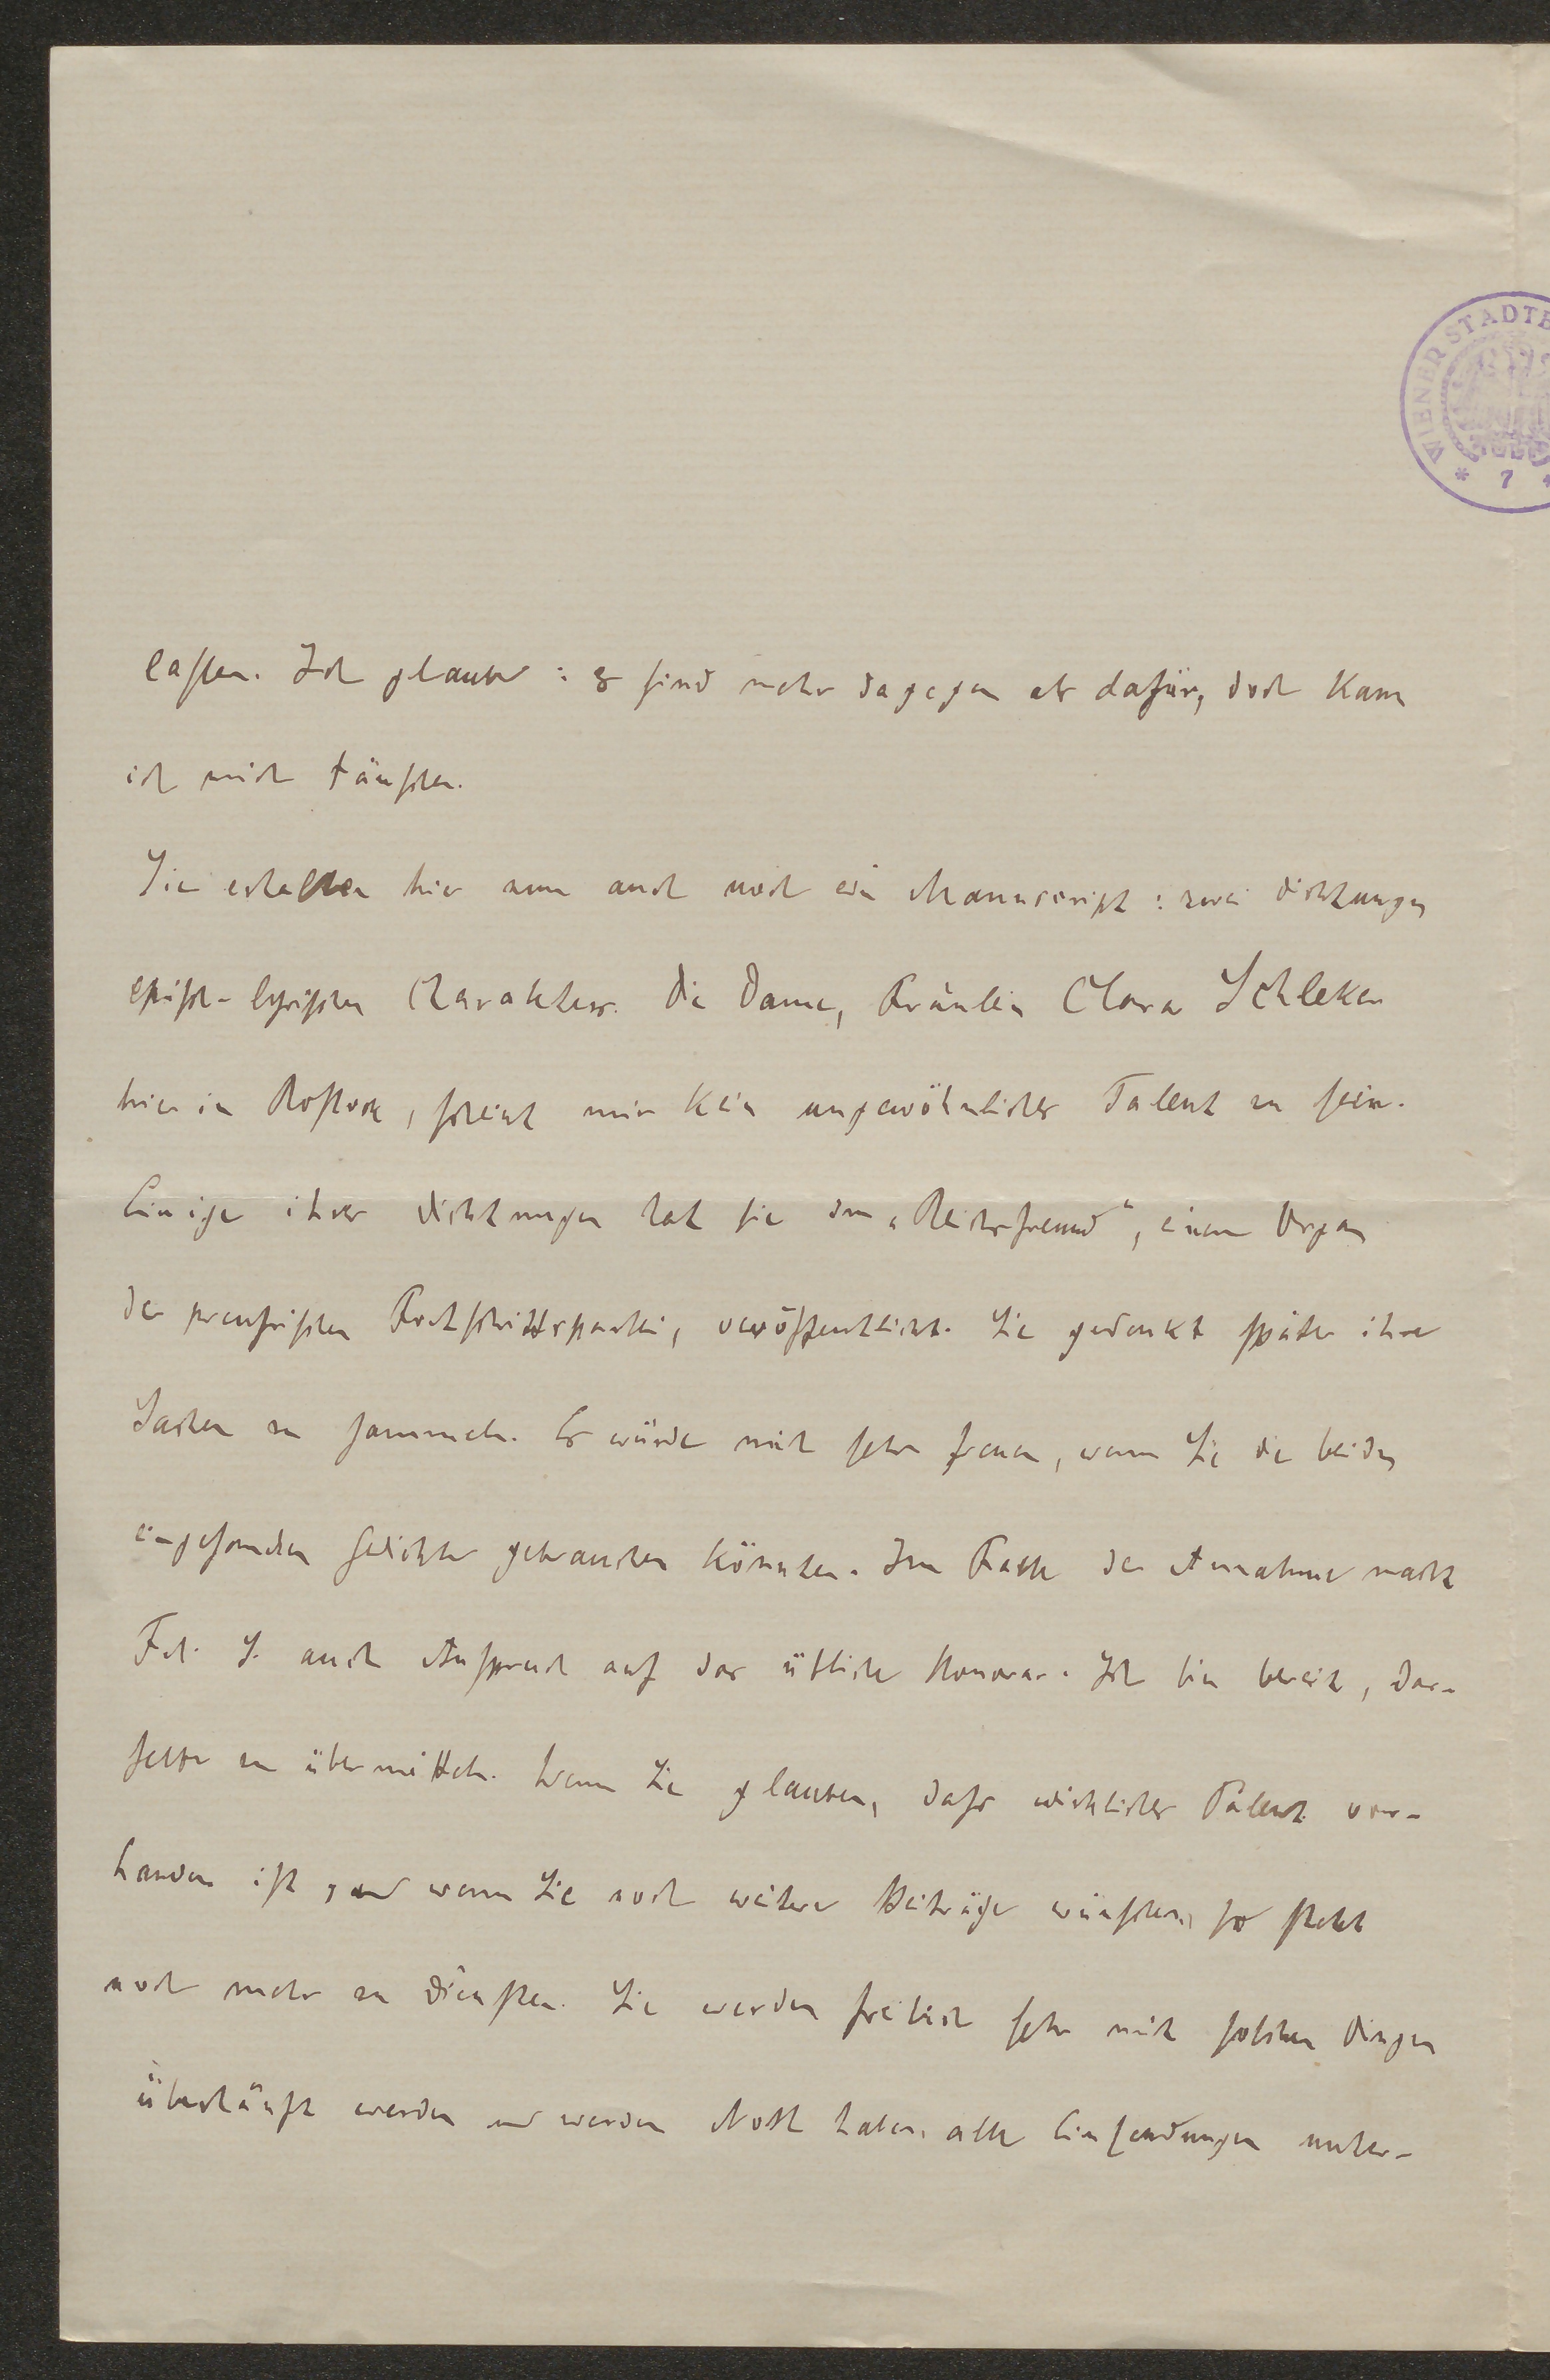 WIENER STADTB
* 7 *
lassen. Ich glaube: es sind mehr dagegen als dafür, doch kann
ich mich täuschen.
Sie erhalten hier nun auch noch ein Manuscript: zwei Dichtungen
episch-lyrischen Charakters. Die Dame, Fräulein Clara Schleker
hier in Rostock, scheint mir kein ungewöhnliches Talent zu sein.
Einige ihrer Dichtungen hat sie im „Reichsfreund“, einem Organ
der preußischen Fortschrittspartei, veröffentlicht. Sie gedenkt später ihre
Sachen zu sammeln. Es würde mich sehr freuen, wenn Sie die beiden
eingesandten Gedichte gebrauchen könnten. Im Falle der Annahme macht
Frl. S. auch Anspruch auf das übliche Honorar. Ich bin bereit, das-
selbe zu übermitteln. Wenn Sie glauben, dass wirkliches Talent vor-
handen ist, und wenn Sie noch weitere Beiträge wünschen, so steht
noch mehr zu Diensten. Sie werden freilich sehr mit solchen Dingen
überhäuft werden und werden Noth haben, alle Einsendungen unter-